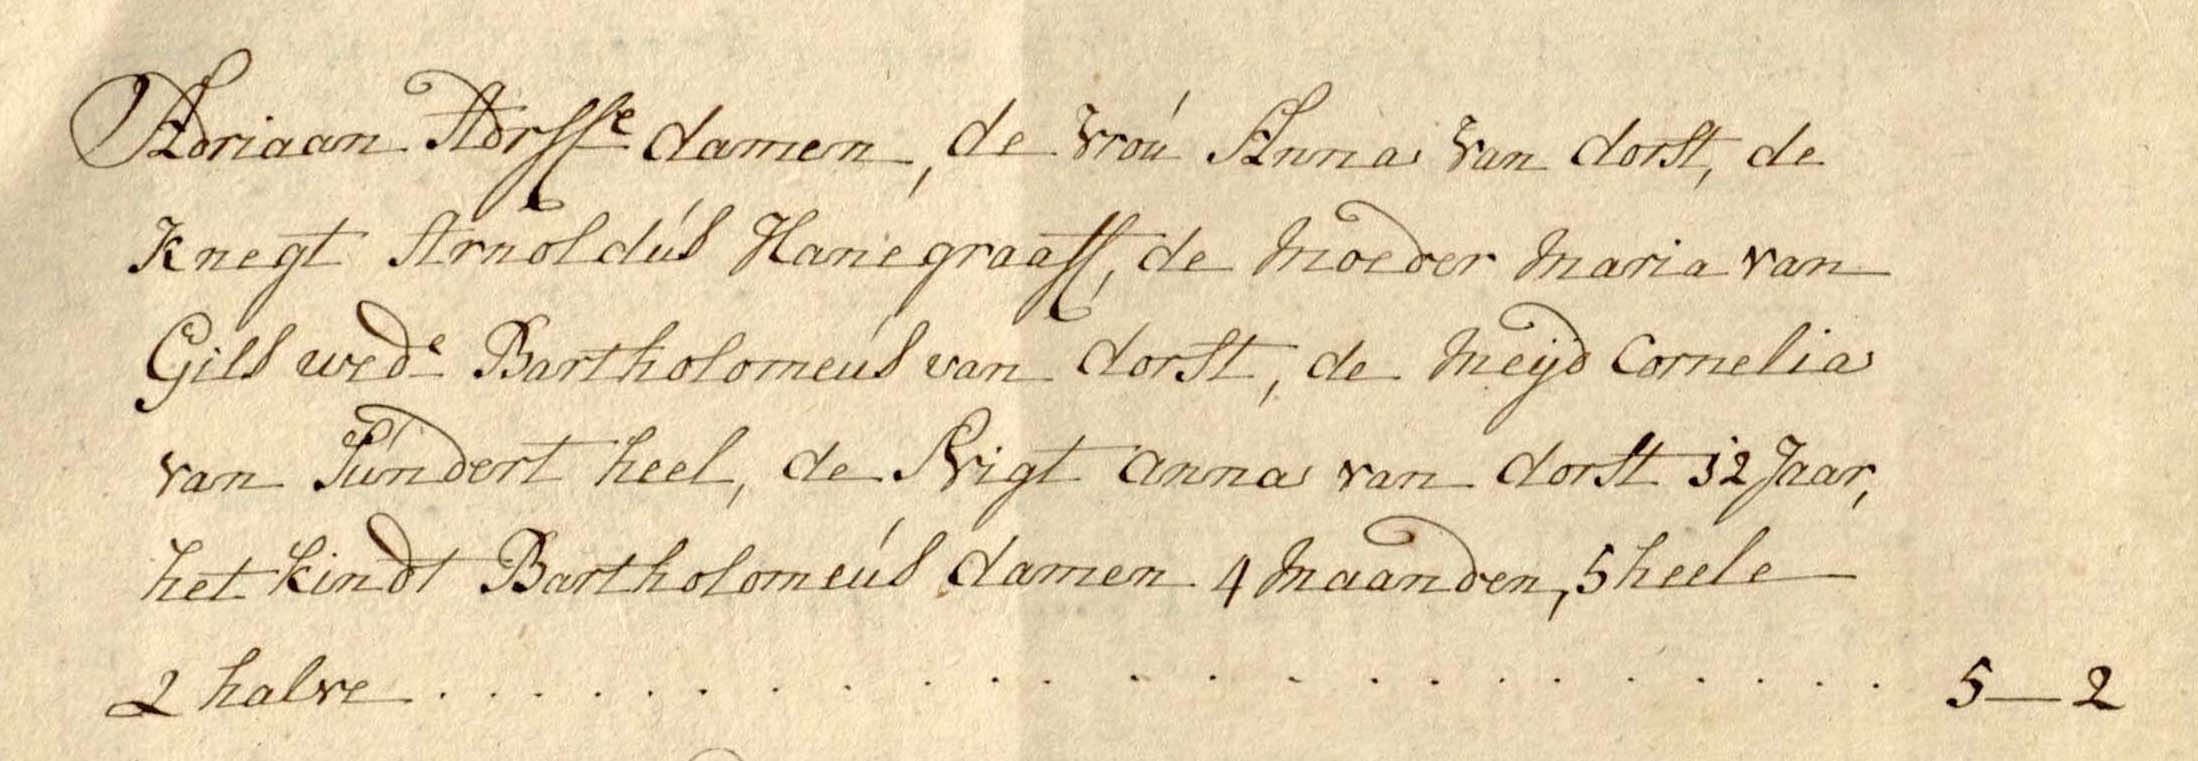 Adriaan Adrsse damen, de vrou Anna van dorst, de
Knegt Arnoldus Hanegraaff, de Moeder Maria van
Gils wede Bartholomeus van dorst, de Meijd Cornelia
van Sundert heel, de Nigt anna van dorst 12 Jaar,
het kindt Bartholomeus damen 4 Maanden, 5 heele
2 halve . . . . . . . . . . . . . . . . . . . . 5—2